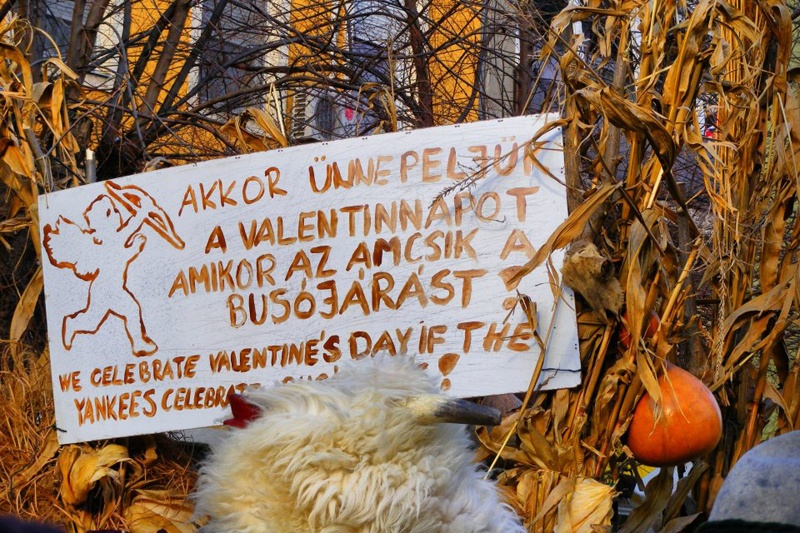 AKKOR ÜNNEPELJÜK
A VALENTINNAPOT
AMIKOR AZ AMCSIK A
BUSÓJÁRÁST!
WE CELEBRATE VALENTINE'S DAY IF THE
YANKEES CELEBRATE !